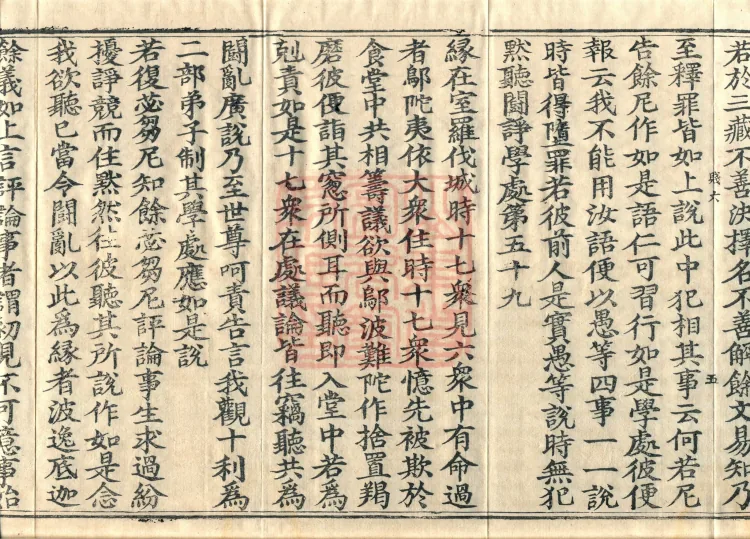 若於三藏不善決擇名不善解餘文易知乃
至釋罪皆如上說此中犯相其事云何若尼
告餘尼作如是語仁可習行如是學處彼便
報云我不能用汝語便以愚等四事一一說
時皆得墮罪若彼前人是實愚等說時無犯
默聽鬪諍學處第五十九
緣在室羅伐城時十七衆見六衆中有命過
者鄔陀夷依大衆住時十七衆憶先被欺於
食堂中共相籌議欲與鄔波難陀作捨置羯
磨彼便詣其窓所側耳而聽即入堂中若爲
剋責如是十七衆在處議論皆往竊聽共爲
鬪亂廣說乃至世尊呵責告言我觀十利爲
二部弟子制其學處應如是說
若復苾芻尼知餘苾芻尼評論事生求過紛
擾諍競而住默然往彼聽其所說作如是念
我欲聽已當令鬪亂以此爲緣者波逸底迦
餘義如上言評論事者謂初見不可意事始
五